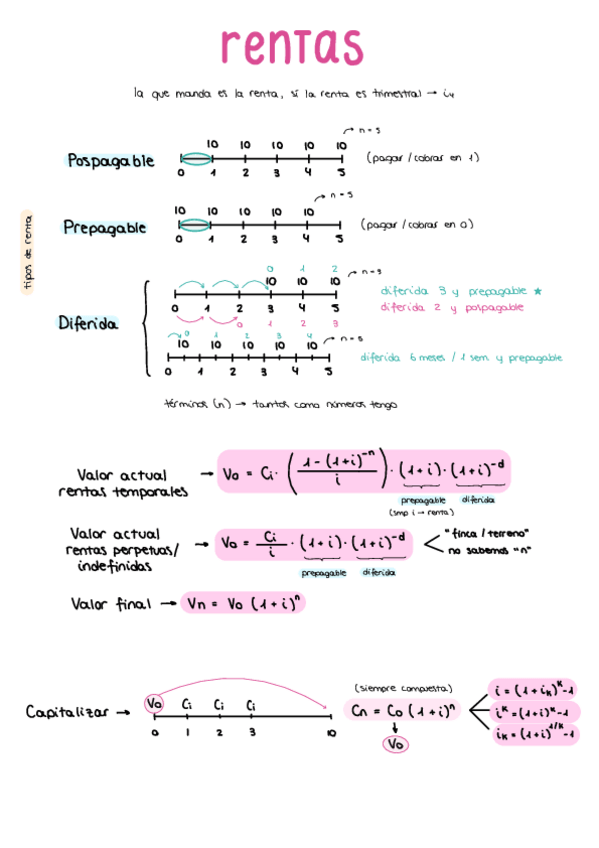 rentas
la que manda es la renta, si la renta es trimestral → i₄
tipos de renta
Pospagable
10 10 10 10 10 → n = 5
0 1 2 3 4 5
(pagar / cobrar en 1)
Prepagable
10 10 10 10 10 → n = 5
0 1 2 3 4 5
(pagar / cobrar en 0)
Diferida
0 1 2
10 10 10 → n = 5
0 1 2 3 4 5
0 1 2 3
diferida 3 y prepagable ★
diferida 2 y pospagable
0 1 2 3 4
10 10 10 10 10 → n = 5
0 1 2 3 4 5
diferida 6 meses / 1 sem y prepagable
términos (n) → tantos como números tengo
Valor actual
rentas temporales
→ Vo = Ci · ( 1 - (1+i)⁻ⁿ / i ) · (1+i) · (1+i)⁻ᵈ
prepagable diferida
(smp i → renta)
Valor actual
rentas perpetuas/
indefinidas
→ Vo = Ci / i · (1+i) · (1+i)⁻ᵈ
prepagable diferida
"finca / terreno"
no sabemos "n"
Valor final → Vn = Vo (1+i)ⁿ
Capitalizar →
Vo Ci Ci Ci
0 1 2 3 10
(siempre compuesta)
Cn = Co (1+i)ⁿ
↓
Vo
i = (1+iₖ)ᵏ-1
iᵏ = (1+i)ᵏ-1
iₖ = (1+i)^1/k -1